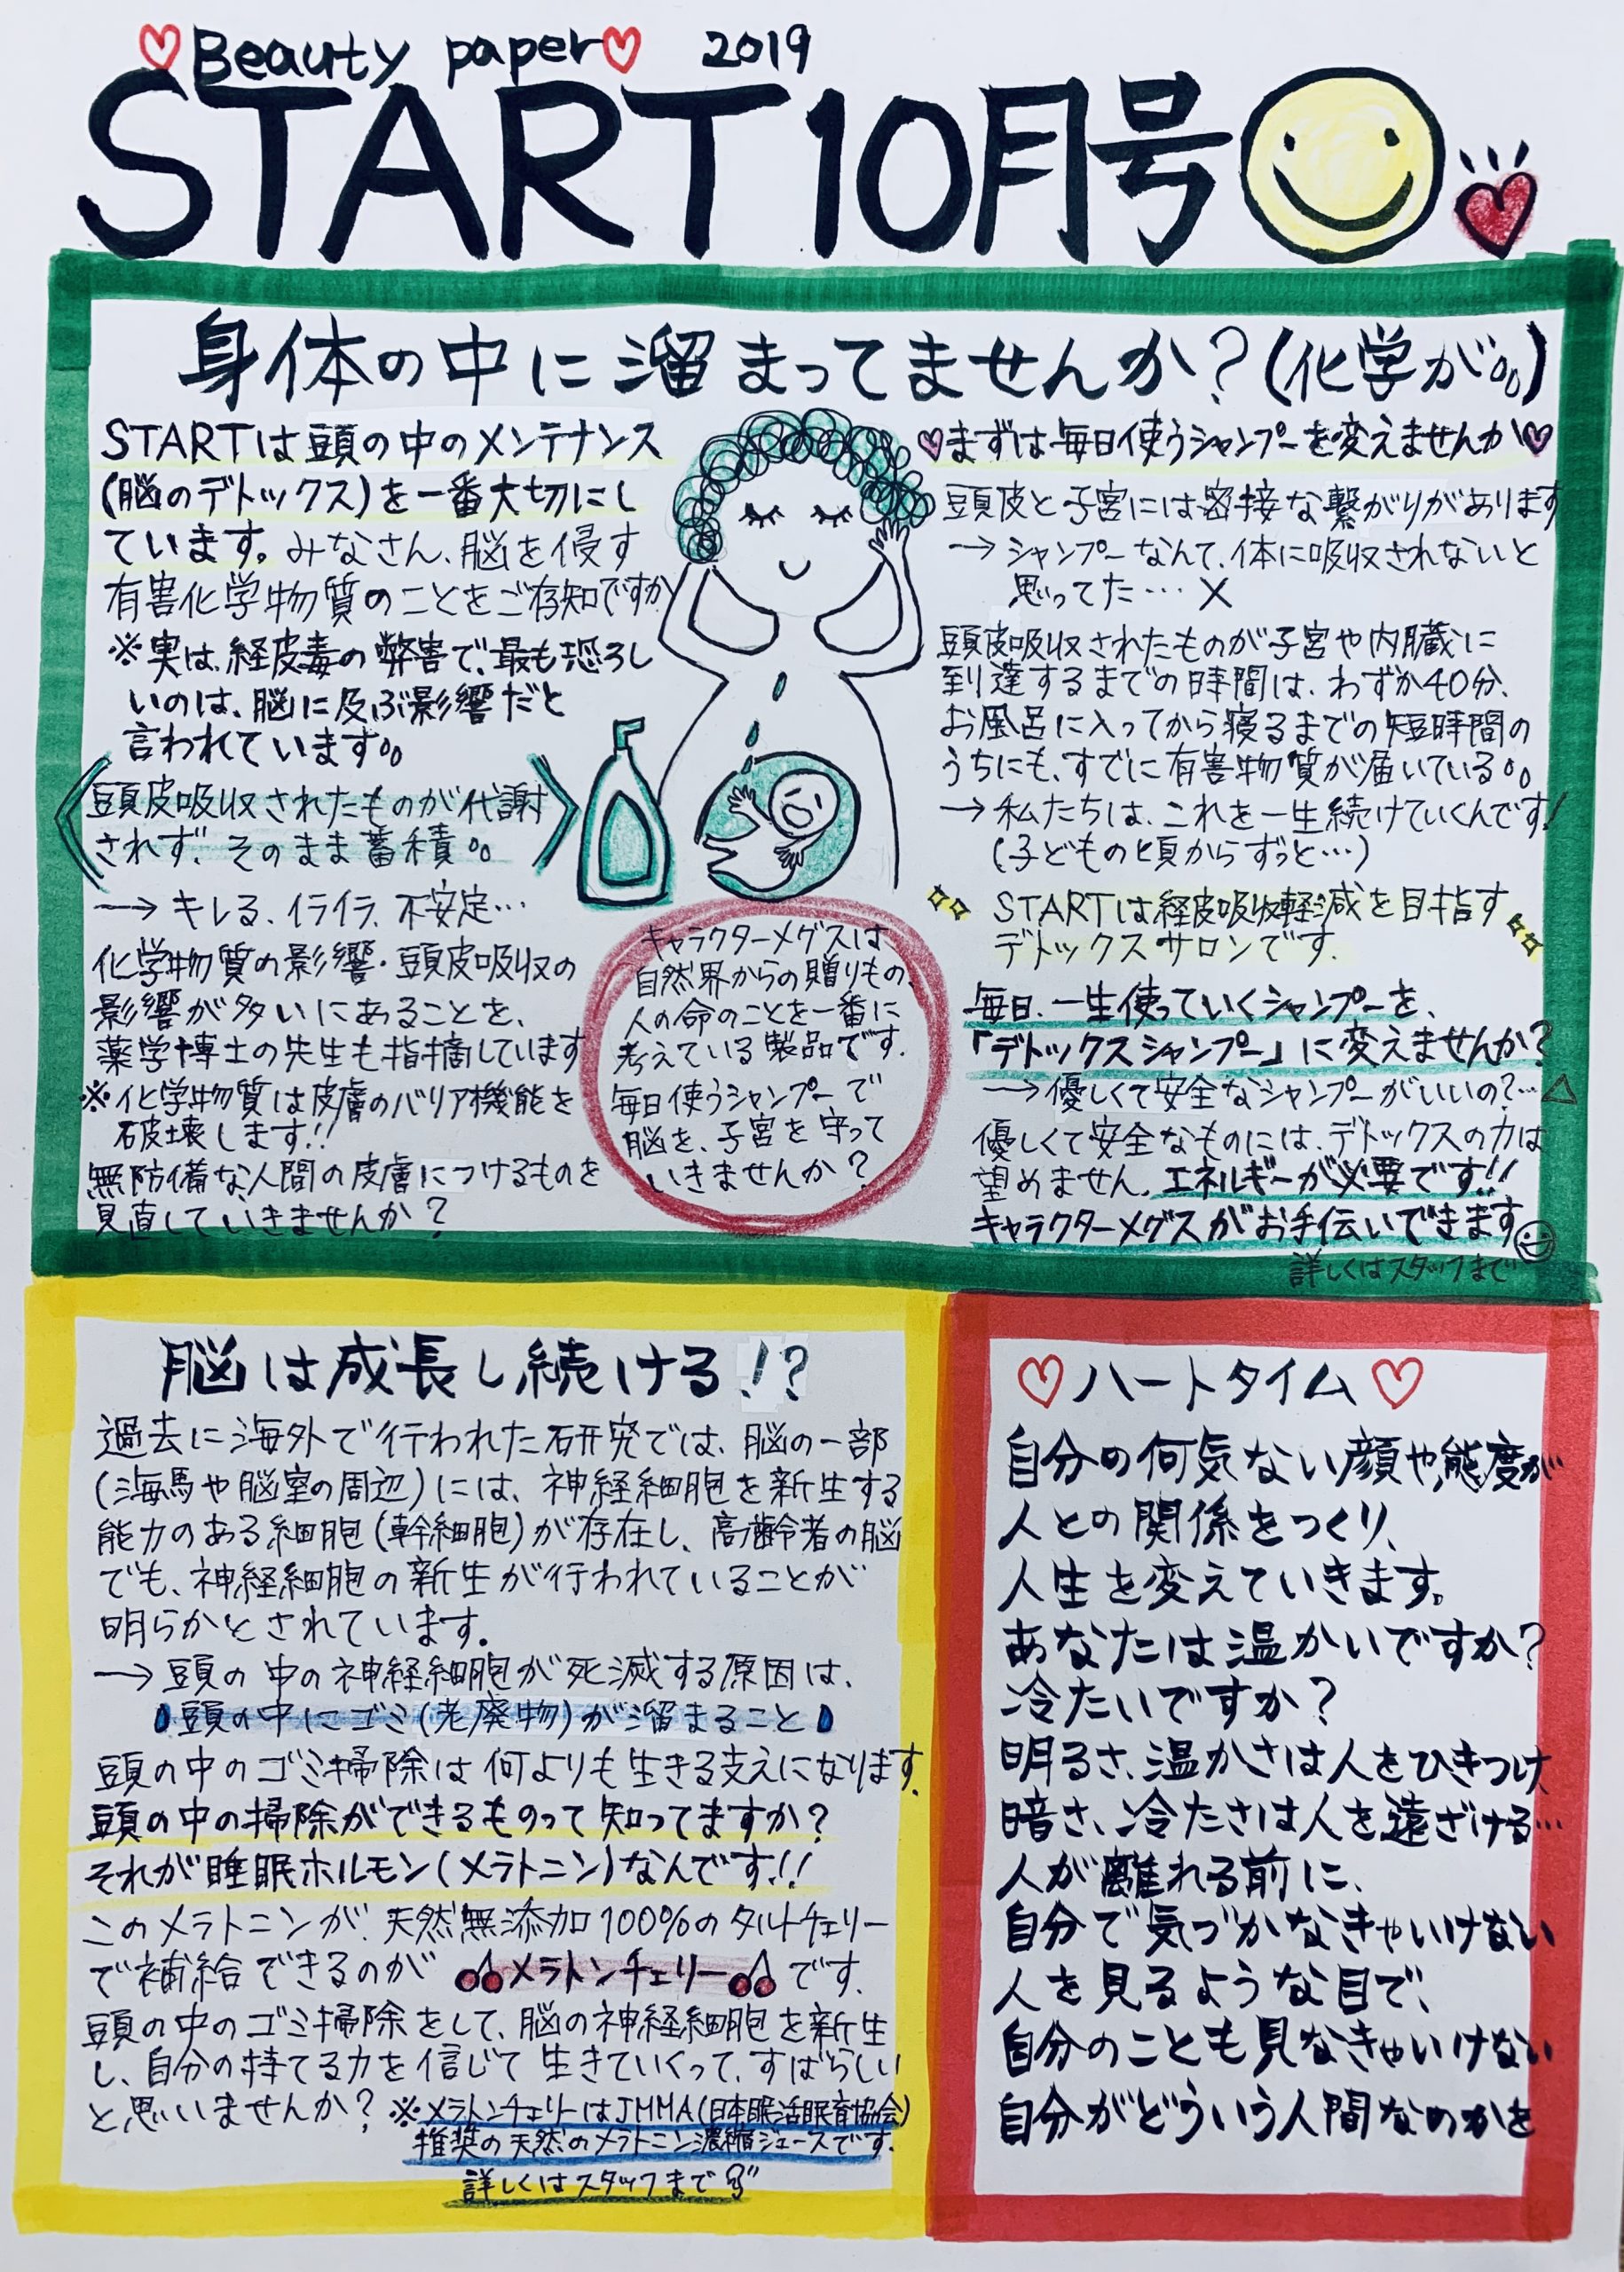 ♡Beauty paper♡ 2019
START10月号
身体の中に溜まってませんか?(化学が。。)
STARTは頭の中のメンテナンス
(脳のデトックス)を一番大切にし
ています。みなさん、脳を侵す
有害化学物質のことをご存知ですか
※実は、経皮毒の弊害で、最も恐ろし
いのは、脳に及ぶ影響だと
言われています。。
頭皮吸収されたものが代謝
されず、そのまま蓄積。。
→キレる、イライラ、不安定…
化学物質の影響・頭皮吸収の
影響が多いにあることを、
薬学博士の先生も指摘しています
※化学物質は皮膚のバリア機能を
破壊します!!
無防備な人間の皮膚につけるものを
見直していきませんか?
キャラクターメグスは、
自然界からの贈りもの、
人の命のことを一番に
考えている製品です。
毎日使うシャンプーで
脳を、子宮を守って
いきませんか?
♡まずは毎日使うシャンプーを変えませんか♡
頭皮と子宮には密接な繋がりがあります
→シャンプーなんて、体に吸収されないと
思ってた…×
頭皮吸収されたものが子宮や内臓に
到達するまでの時間は、わずか40分、
お風呂に入ってから寝るまでの短時間の
うちにも、すでに有害物質が届いている。。
→私たちは、これを一生続けていくんです!
(子どもの頃からずっと…)
STARTは経皮吸収軽減を目指す
デトックスサロンです。
毎日、一生使っていくシャンプーを、
「デトックスシャンプー」に変えませんか?
→優しくて安全なシャンプーがいいの?…△
優しくて安全なものには、デトックスの力は
望めません。エネルギーが必要です!!
キャラクターメグスがお手伝いできます
詳しくはスタッフまで
脳は成長し続ける!?
過去に海外で行われた研究では、脳の一部
(海馬や脳室の周辺)には、神経細胞を新生する
能力のある細胞(幹細胞)が存在し、高齢者の脳
でも、神経細胞の新生が行われていることが
明らかとされています。
→頭の中の神経細胞が死滅する原因は、
頭の中にゴミ(老廃物)が溜まること
頭の中のゴミ掃除は何よりも生きる支えになります。
頭の中の掃除ができるものって知ってますか?
それが睡眠ホルモン(メラトニン)なんです!!
このメラトニンが、天然無添加100%のタルトチェリー
で補給できるのが メラトンチェリー です。
頭の中のゴミ掃除をして、脳の神経細胞を新生
し、自分の持てる力を信じて生きていくって、すばらしい
と思いませんか?※メラトンチェリーはJMMA(日本眠活眠育協会)
推奨の天然のメラトニン濃縮ジュースです。
詳しくはスタッフまで
♡ハートタイム♡
自分の何気ない顔や態度が
人との関係をつくり、
人生を変えていきます。
あなたは温かいですか?
冷たいですか?
明るさ、温かさは人をひきつけ
暗さ、冷たさは人を遠ざける…
人が離れる前に、
自分で気づかなきゃいけない
人を見るような目で、
自分のことも見なきゃいけない
自分がどういう人間なのかを